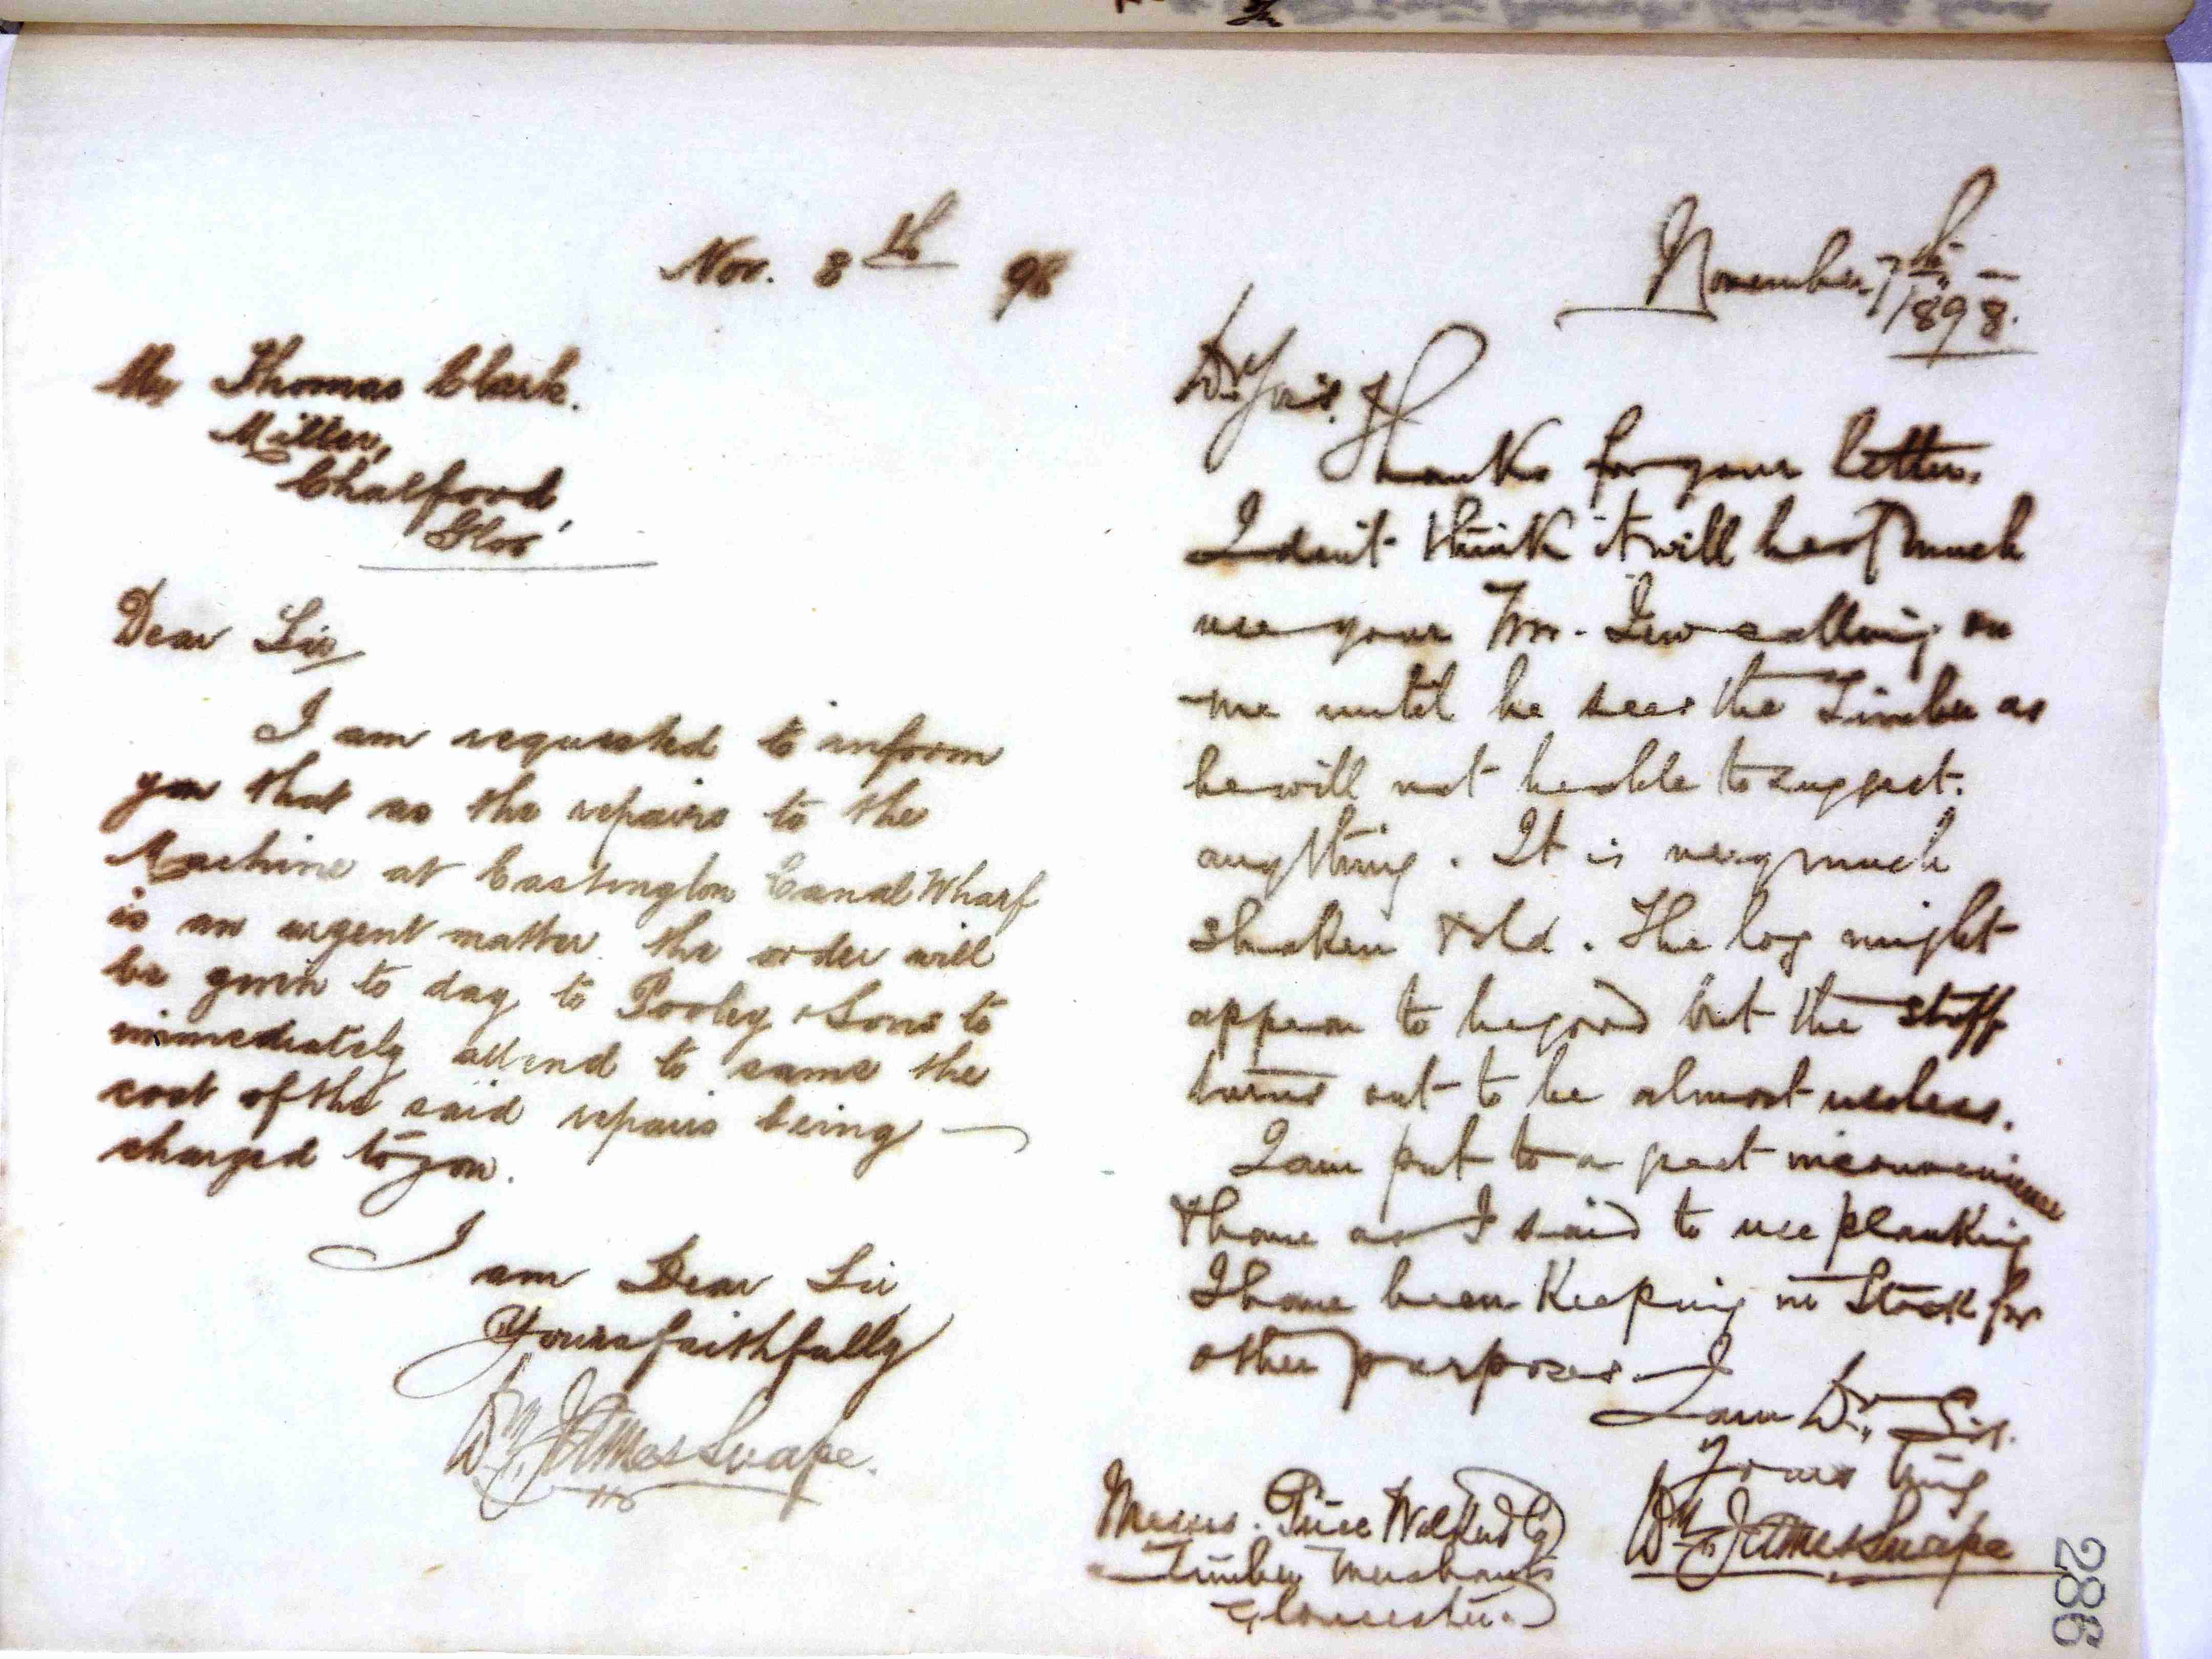 Nov. 8th 98
Mr Thomas Clark.
Miller,
Chalford,
Glos'
Dear Sir
I am requested to inform
you that as the repairs to the
Machine at Eastington Canal Wharf
is an urgent matter the order will
be givin to day to Pooley & Sons to
immediately attend to same the
cost of the said repairs being
charged to you.
I am Dear Sir
Yours faithfully
Wm. James Snape.
November 7th, 1898.
Dr. Sirs.
Thanks for your letter.
I don't think it will be of much
use your Mr. calling on
me until he sees the Timber as
he will not be able to suggest
anything. It is very much
shaken & old. The log might
appear to be good but the stuff
turns out to be almost useless.
I am put to a great inconvenience
& have as I said to use planking
I have been Keeping in Stock for
other purposes
I am Dr. Sirs.
Yours truly
Wm. James Snape
Messrs. Price Walker & Co
Timber Merchants
Gloucester.
286